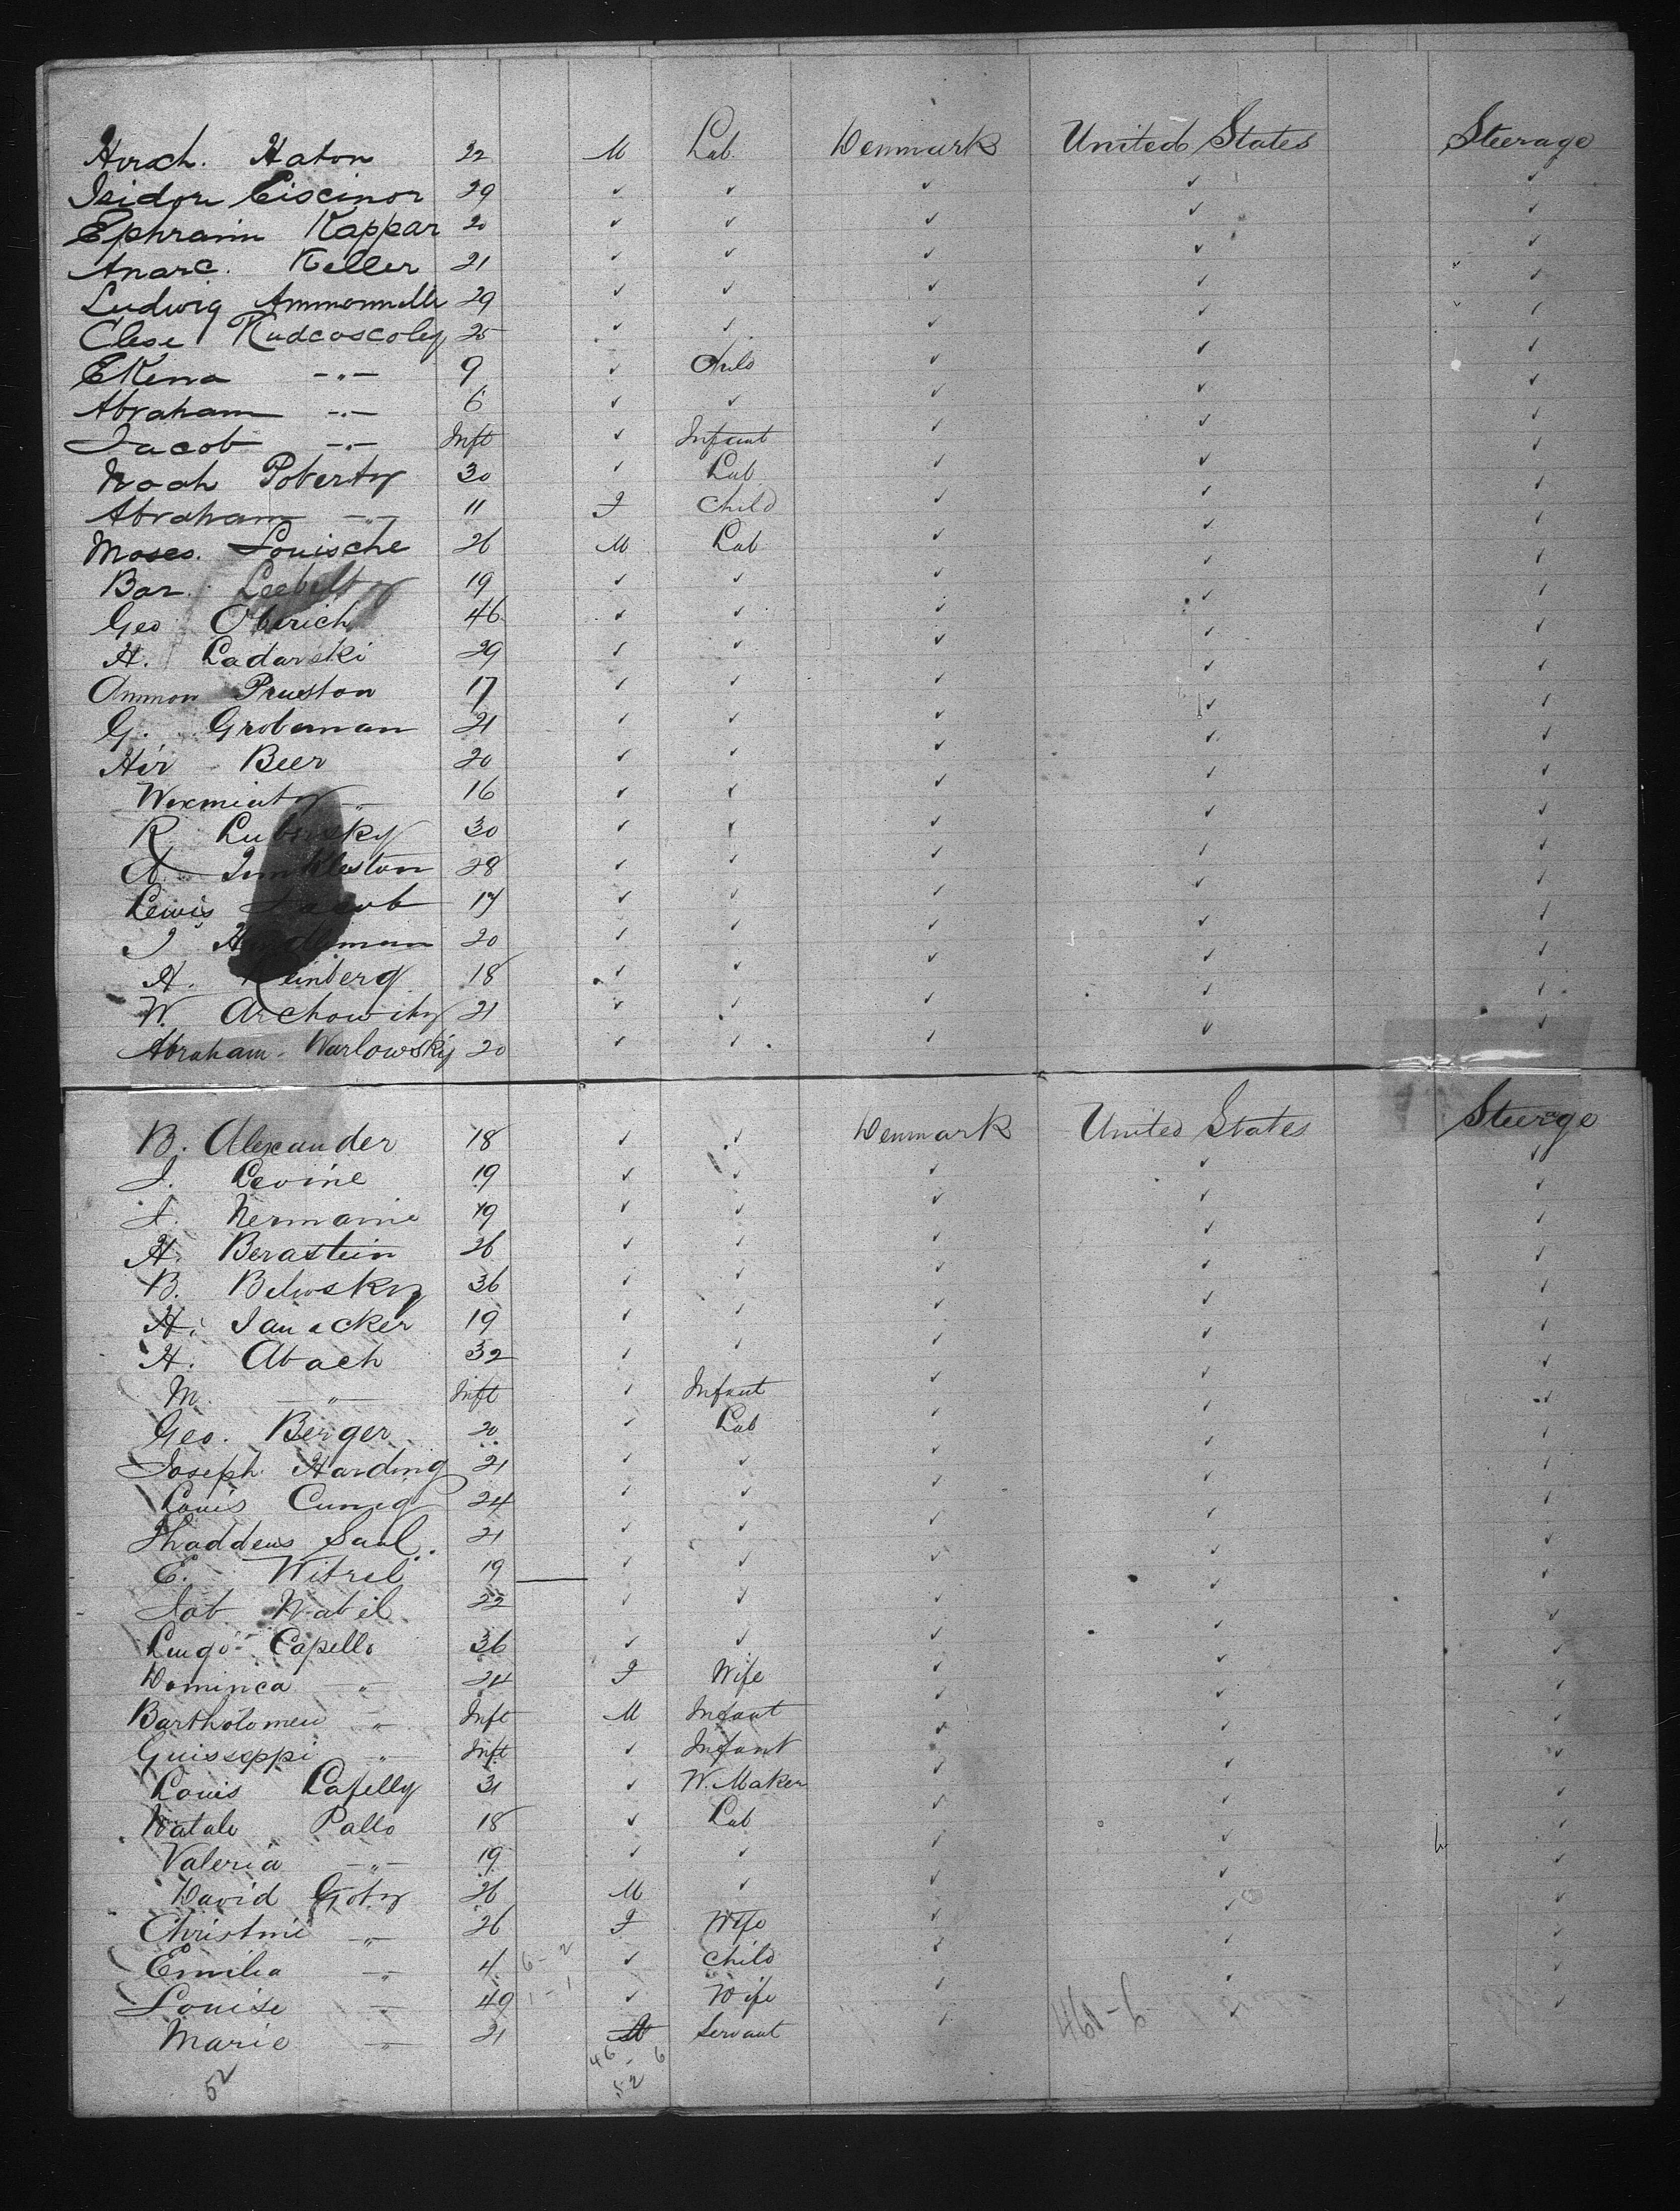 Hirsch. Haton 22 M Lab Denmark United States Steerage
Isidor Eiscinor 29 ✓ ✓ ✓ ✓ ✓
Ephraim Kappar 20 ✓ ✓ ✓ ✓ ✓
Anarc. Keller 21 ✓ ✓ ✓ ✓ ✓
Ludwig 29 ✓ ✓ ✓ ✓ ✓
Clese 25 ✓ ✓ ✓ ✓ ✓
Ekena -"- 9 ✓ Child ✓ ✓ ✓
Abraham -"- 6 ✓ ✓ ✓ ✓ ✓
Jacob -"- Inft ✓ Infant ✓ ✓ ✓
Noah Poberty 30 ✓ Lab ✓ ✓ ✓
Abraham -"- 11 F Child ✓ ✓ ✓
Moses. Louische 26 M Lab ✓ ✓ ✓
Bar. 19 ✓ ✓ ✓ ✓ ✓
Geo Oberich 46 ✓ ✓ ✓ ✓ ✓
H. Ladarski 29 ✓ ✓ ✓ ✓ ✓
Ammon Pruston 17 ✓ ✓ ✓ ✓ ✓
G. Grobaman 21 ✓ ✓ ✓ ✓ ✓
Hir Beer 20 ✓ ✓ ✓ ✓ ✓
-"- 16 ✓ ✓ ✓ ✓ ✓
R. Lubinsky 30 ✓ ✓ ✓ ✓ ✓
A. 28 ✓ ✓ ✓ ✓ ✓
Lewis Jacob 17 ✓ ✓ ✓ ✓ ✓
J 20 ✓ ✓ ✓ ✓ ✓
H. 18 ✓ ✓ ✓ ✓ ✓
W. Archowithy 21 ✓ ✓ ✓ ✓ ✓
Abraham. Warlowskij 20 ✓ ✓ ✓ ✓ ✓
B. Alexander 18 ✓ ✓ Denmark United States Steerage
J. Levine 19 ✓ ✓ ✓ ✓ ✓
J. Nermaine 19 ✓ ✓ ✓ ✓ ✓
H. Berastein 26 ✓ ✓ ✓ ✓ ✓
B. Belwsky 36 ✓ ✓ ✓ ✓ ✓
H. 19 ✓ ✓ ✓ ✓ ✓
H. Abach 32 ✓ ✓ ✓ ✓ ✓
M. -"- Inft ✓ Infant ✓ ✓ ✓
Geo. Berger 20 ✓ Lab ✓ ✓ ✓
Joseph Harding 21 ✓ ✓ ✓ ✓ ✓
Louis 24 ✓ ✓ ✓ ✓ ✓
Thaddeus Saul. 21 ✓ ✓ ✓ ✓ ✓
E. Witrel 19 ✓ ✓ ✓ ✓ ✓
Job Wabil 22 ✓ ✓ ✓ ✓ ✓
Luigo Capello 36 ✓ ✓ ✓ ✓ ✓
Dominca " 24 F Wife ✓ ✓ ✓
Bartholomeu " Inft M Infant ✓ ✓ ✓
Guisseppi " Inft ✓ Infant ✓ ✓ ✓
Louis Lafelly 31 ✓ W. Maker ✓ ✓ ✓
Natale Pallo 18 ✓ Lab ✓ ✓ ✓
Valeria -"- 19 ✓ ✓ ✓ ✓ ✓
David Goty 26 M ✓ ✓ ✓ ✓
Christine -"- 26 F Wife ✓ ✓ ✓
Emilia -"- 4 6-2 ✓ Child ✓ ✓ ✓
Louise -"- 49 1-1 ✓ Wife ✓ ✓ ✓
Marie -"- 21 Servant ✓ 461-6 ✓ ✓
46-6
52 52